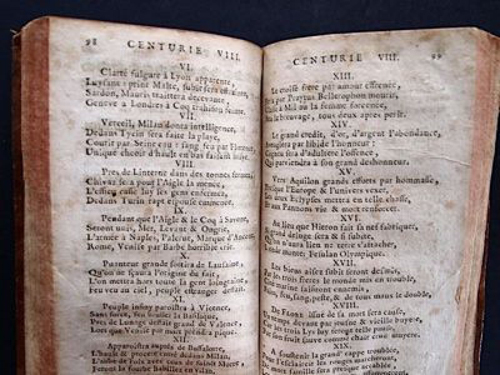 98 CENTURIE VIII.
VI.
Clarté fulgure à Lyon apparente,
Luysant, print Malte, subit sera estainte,
Sardon, Mauris traittera decevante,
Geneve a Londres à Coq trahison fainte.
VII.
Verceil, Milan donra intelligence,
Dedans Tycin sera faite la playe,
Courir par Seine eau, sang, feu par Florence,
Unique choir d'hault en bas faisant
VIII.
Pres de Linterne dans des tonnes fermez,
Chivas fera pour l'Aigle la menée,
L'esleu cassé luy ses gens enfermez,
Dedans Turin rapt espouse emmenée.
IX.
Pendant que l'Aigle & le Coq à Savone,
Seront unis, Mer, Levant & Ongrie,
L'armée à Naples, Palerne, Marque d'Ancone,
Rome, Venise par Barbe horrible crie.
X.
Puanteur grande sortira de Lausanne,
Qu'on ne sçaura l'origine du fait,
L'on mettra hors toute la gent loingtaine,
Feu veu au ciel, peuple estranger deffait.
XI.
Peuple infiny paroistra à Vicence,
Sans force, feu brusler la Basilique,
Pres de Lunage deffait grand de Valence,
Lors que Venise par mort prendra pique.
XII.
Apparoistra aupres de Buffalorre,
L'hault & procere entré dedans Milan,
L'Abbé de Foix avec ceux de Saint Morre,
Feront la fourbe habillez en vilan.
CENTURIE VIII. 99
XIII.
Le croisé frere par amour effrenée,
Fera par Praytus Bellerophon mourir,
Classe à Mil ans la femme forcenée,
Beu le breuvage, tous deux apres perir.
XIV.
Le grand credit, d'or, d'argent l'abondance,
Aveuglera par libide l'honneur:
Cogneu sera d'adultere l'offence,
Qui parviendra à son grand deshonneur.
XV.
Vers Aquilon grands efforts par hommasse,
Presque l'Europe & l'univers vexer,
Les deux Eclypses mettra en telle chasse,
Et aux Pannons vie & mort renforcer.
XVI.
Au lieu que Hieron fait sa nef fabriquer,
Si grand deluge sera & si subite,
Qu'on n'aura lieu ne terre s'attacher,
L'onde monter Fesulan Olympique.
XVII.
Les biens aisez subit seront desmis,
Par les trois freres le monde mis en trouble,
Cité marine saisiront ennemis,
Faim, feu, sang, peste, & de tous maux le double.
XVIII.
De Flore issue de sa mort sera cause,
Un temps devant par jeusne & vieille buyere,
Car les trois Lys luy feront telle pause,
Par son fruit sauve comme chair crue
XIX.
A soustenir la grand' cappe troublée,
Pour l'esclaircir les rouges marcheront,
De mort famille sera presque accablée,